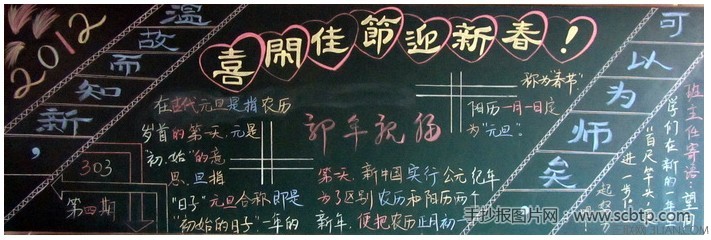 2012
温故而知新，
可以为师矣
喜闹佳節迎新春！
303
第四期
在古代元旦是指农历
岁首的第一天.元是
"初.始"的意
思.旦指
"日子"元旦合称即是
"初始的日子".一年的
新年祝福
第一天.新中国实行公元纪年
为了区别农历和阳历两个
新年.便把农历正月初一
称为"春节"
阳历一月一日定
为"元旦".
班主任寄语:望
学们在新的一年
"百尺竿头,
进一步
手抄报图片网 www.scbtp.com